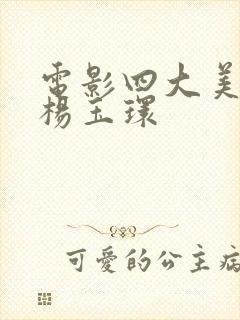 電影四大美
楊玉環
可愛的公主病